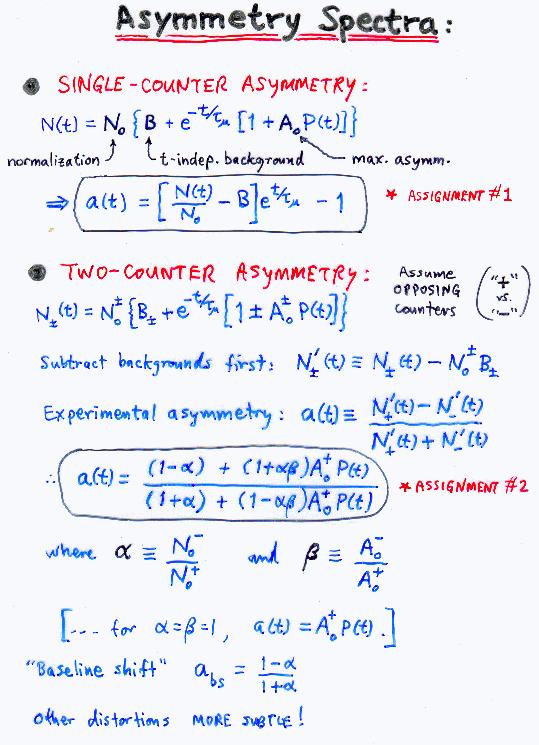 Asymmetry Spectra:
● SINGLE-COUNTER ASYMMETRY:
N(t) = N₀ {B + e^(-t/τ_μ) [1 + A₀P(t)]}
normalization t-indep. background max. asymm.
⇒ a(t) = [N(t)/N₀ - B] e^(t/τ_μ) - 1 * ASSIGNMENT #1
● TWO-COUNTER ASYMMETRY: Assume OPPOSING Counters ("+" vs. "-")
N±(t) = N₀^± {B± + e^(-t/τ_μ) [1 ± A₀^± P(t)]}
Subtract backgrounds first: N'±(t) ≡ N±(t) - N₀^± B±
Experimental asymmetry: a(t) ≡ (N'₊(t) - N'₋(t)) / (N'₊(t) + N'₋(t))
∴ a(t) = ((1-α) + (1+αβ)A₀⁺ P(t)) / ((1+α) + (1-αβ)A₀⁺ P(t)) * ASSIGNMENT #2
where α ≡ N₀⁻/N₀⁺ and β ≡ A₀⁻/A₀⁺
[... for α=β=1, a(t) = A₀⁺ P(t).]
"Baseline shift" a_bs = (1-α)/(1+α)
Other distortions MORE SUBTLE!